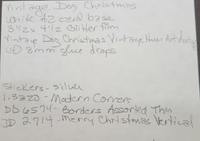 Vintage Dog Christmas
white A2 card base
3½ x 4¾ Glitter film
Vintage Dog Christmas Vintage
UO 8mm glue drops
Stickers - silver
1.3220 - Modern Corners
DD 6574 - Borders Assorted Thin
JD 2714 - Merry Christmas Vertical